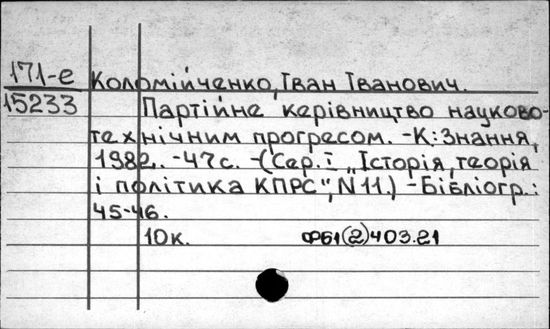 171-е Коломійченко, Іван Іванович.
15233 Партійне керівництво науково-
технічним прогресом. -К.: Знання,
1982. -47с. -(Сер. I „Історія, теорія
і політика КПРС", N 11.) -Бібліогр.:
45-46.
10к. ФБ1(2)403.21